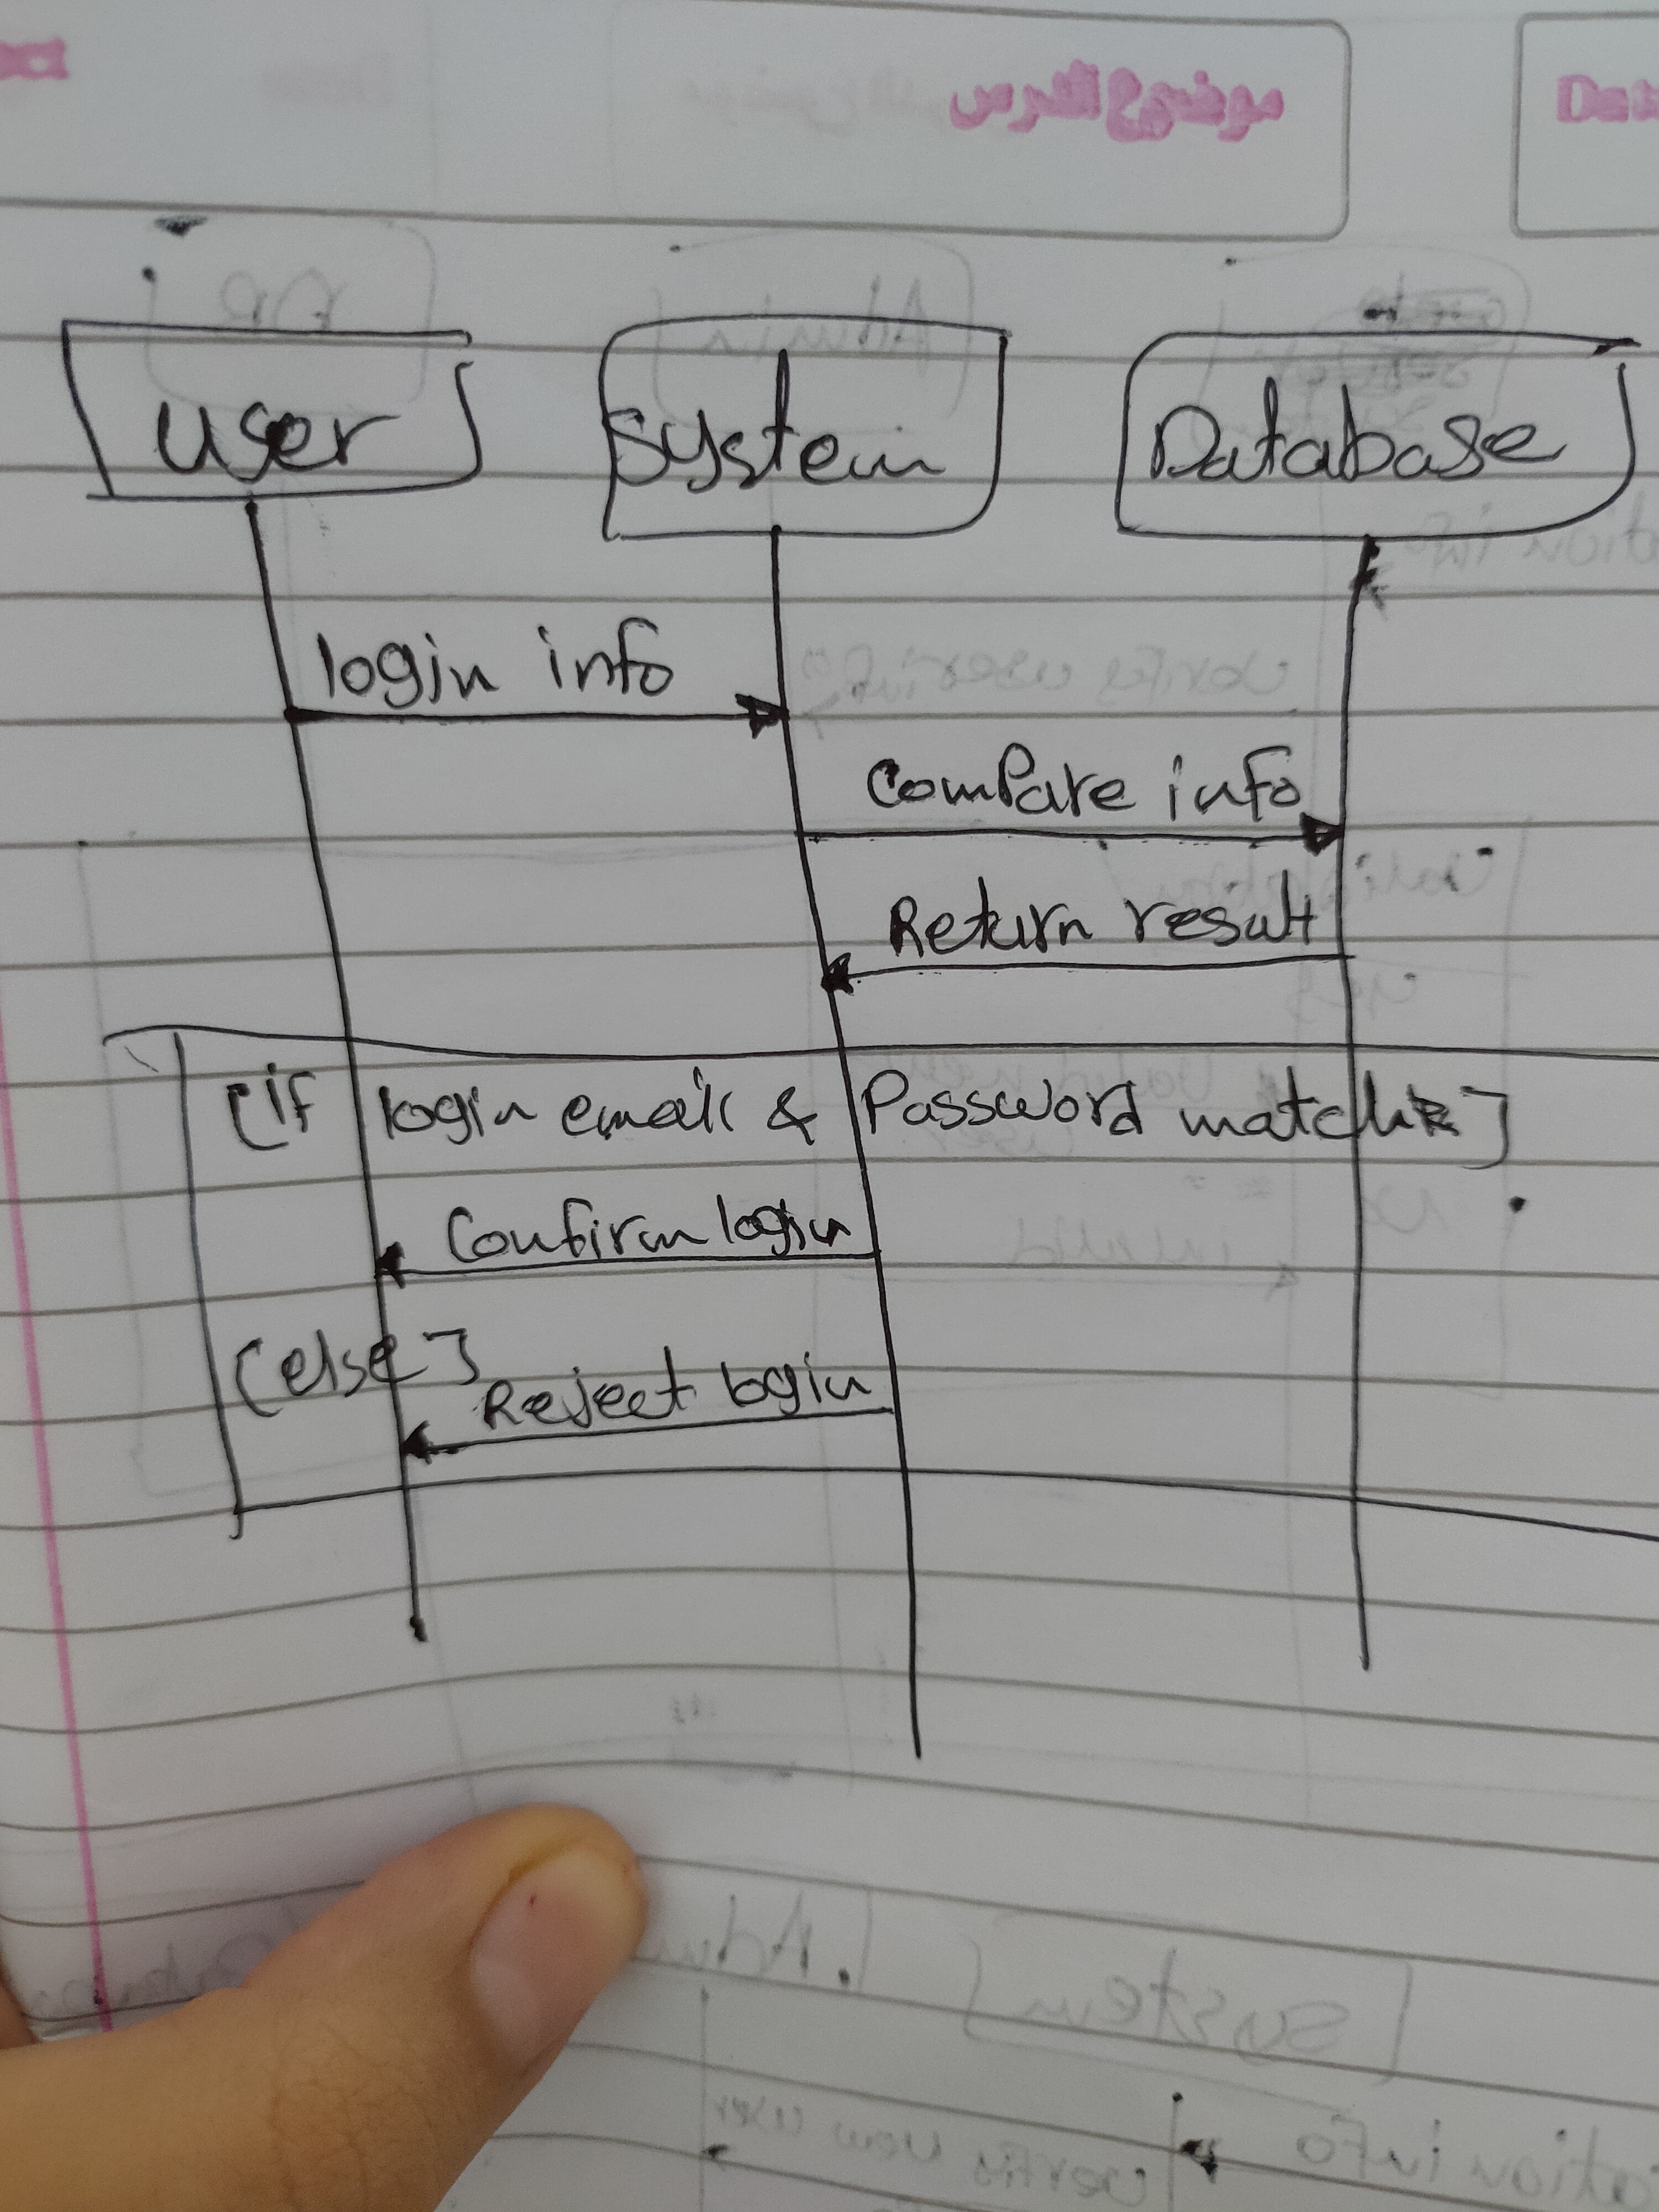 موضوع الدرس
user
System
Database
login info
Compare info
Return result
[if login email & Password match]
Confirm login
[else]
Reject login